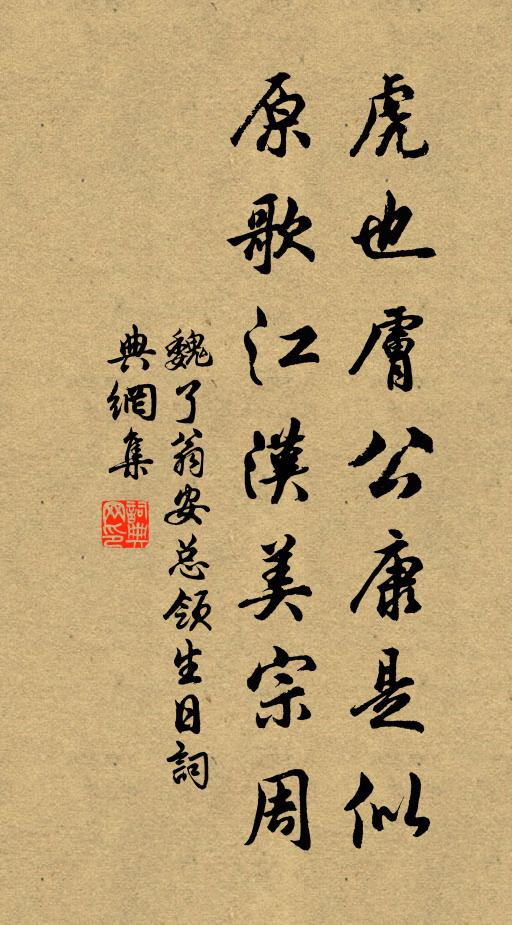 虎也膚公康是似
原歌江漢美宗周
魏了翁安总領生日詞
典網集
詞典网印